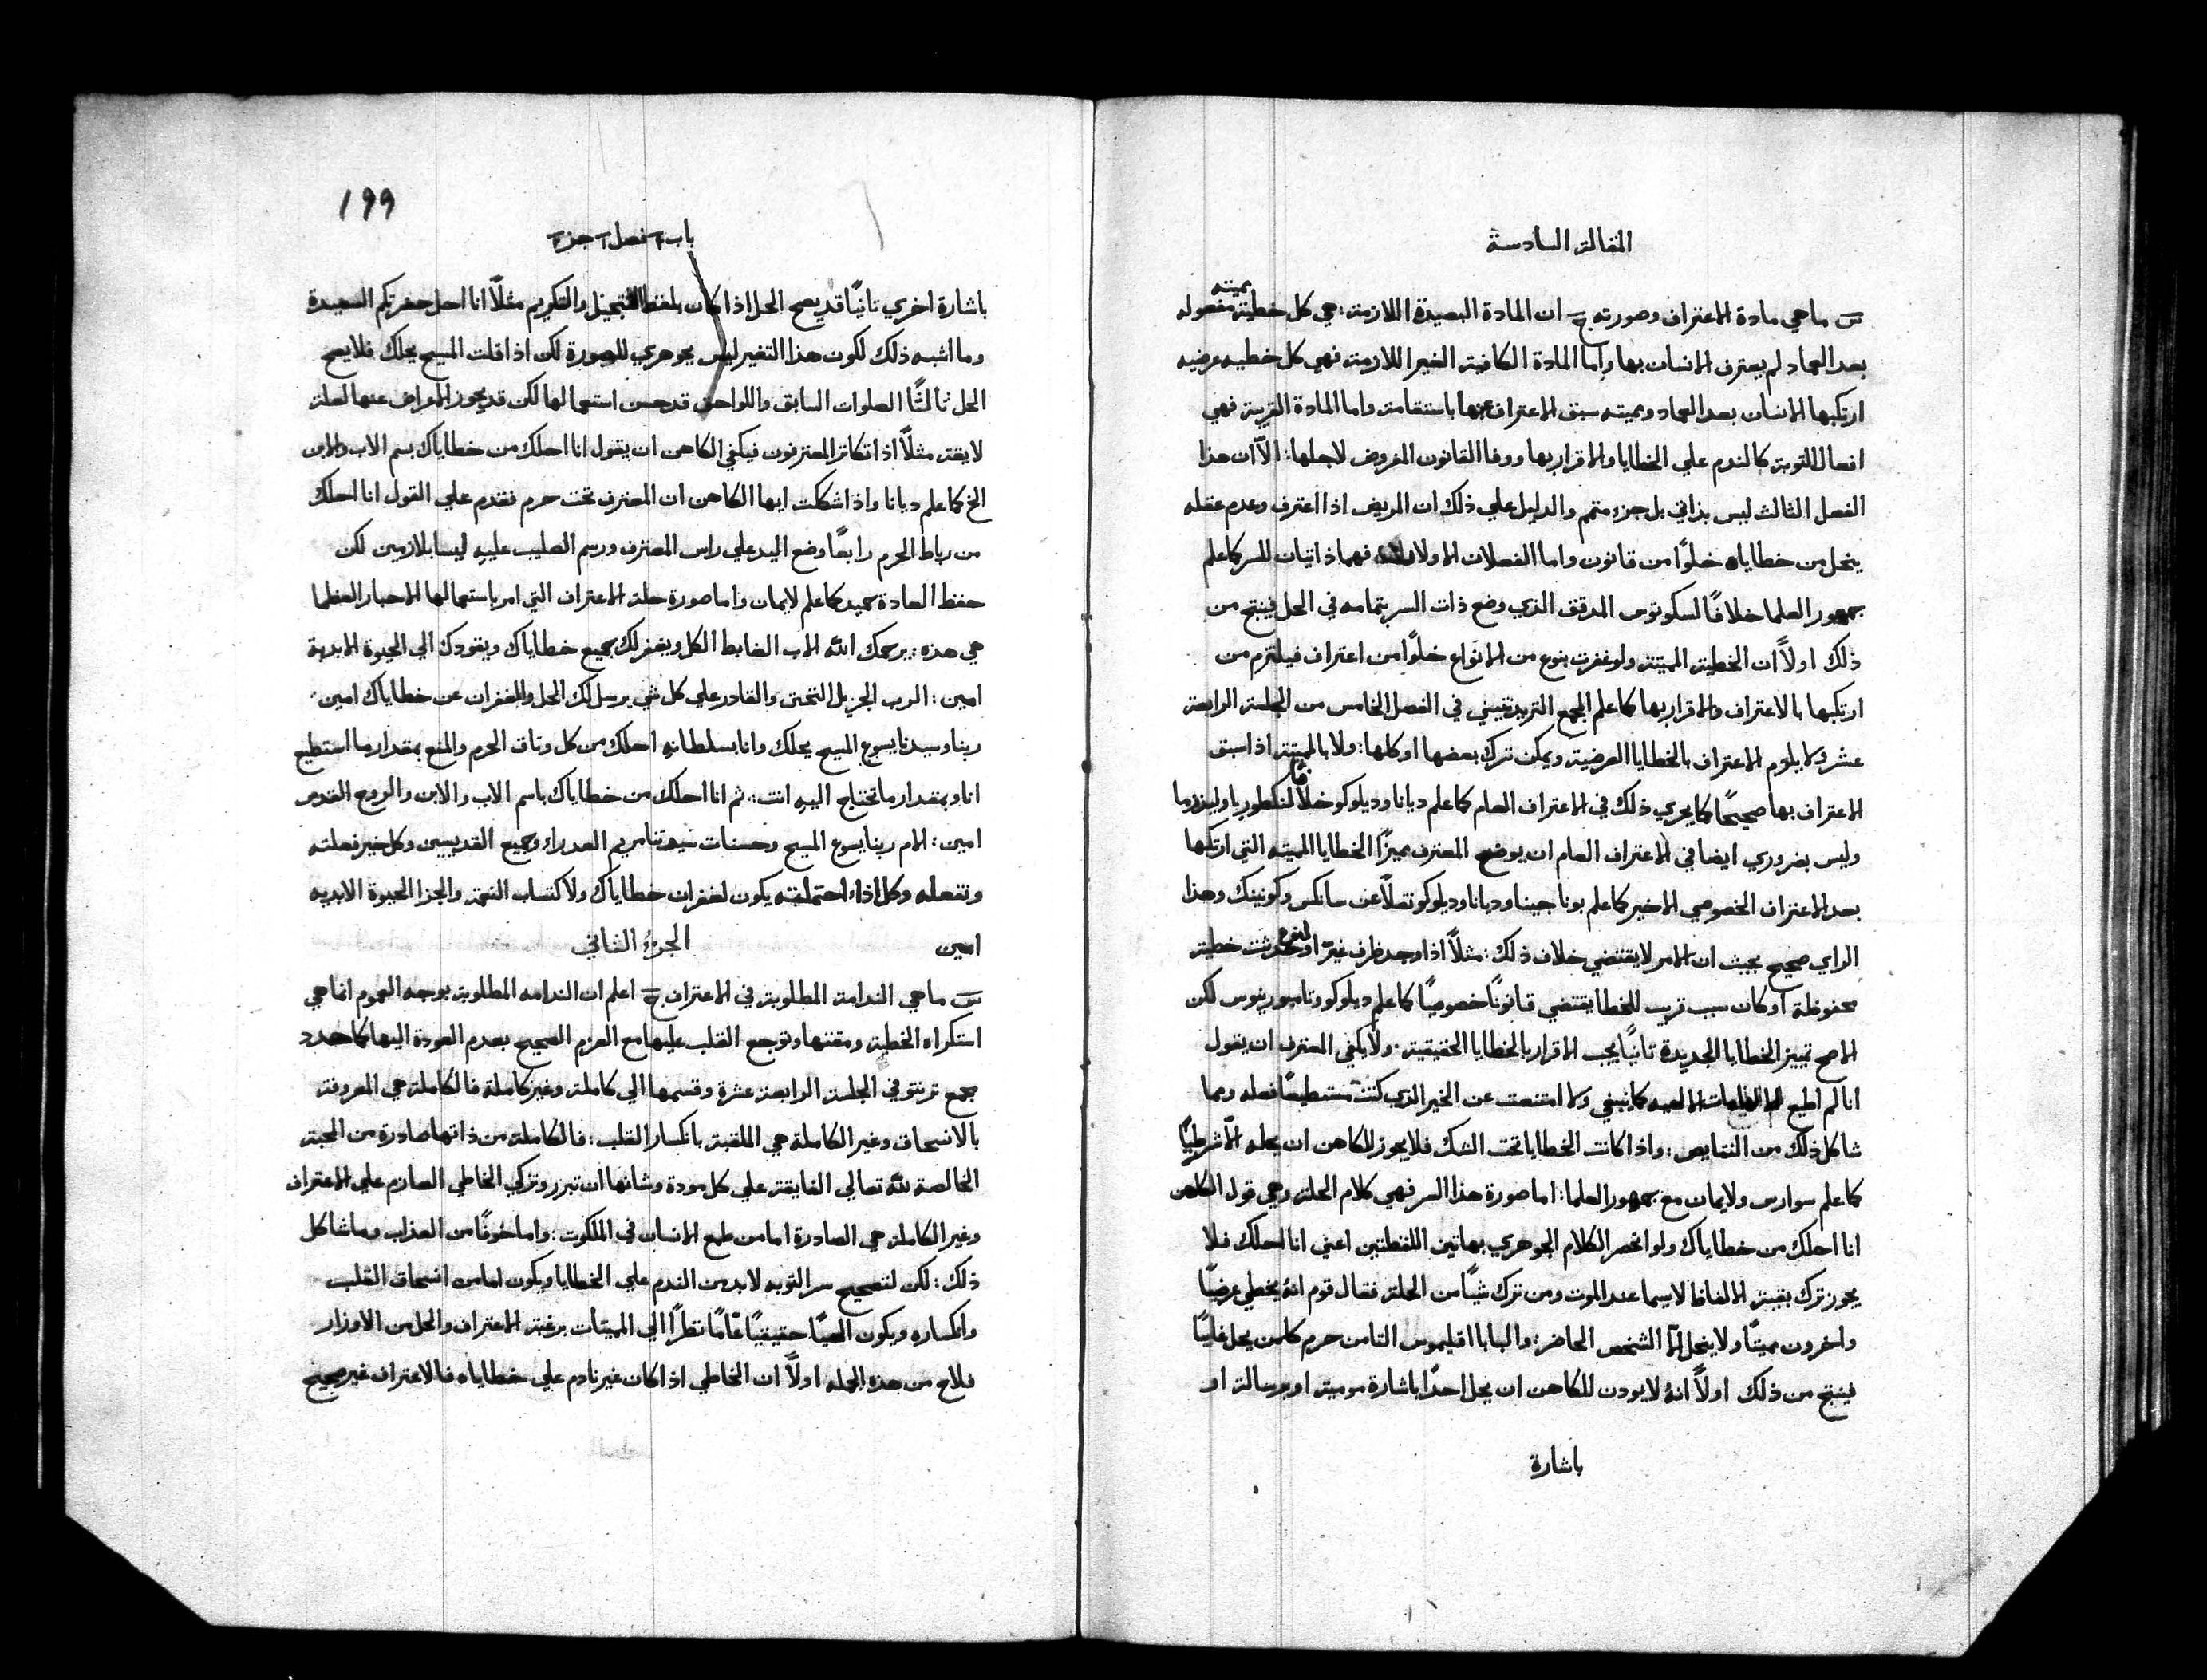 المقالة السادسة
س ما هي مادة الاعتراف وصورته ج ان المادة البعيدة اللازمة: هي كل خطية مميته مفعوله
بعد العماد لم يعترف الانسان بها واما المادة الكافية الغير اللازمة فهي كل خطيه عرضيه
ارتكبها الانسان بعد العماد ومميته سبق الاعتراف عنها باستقامة واما المادة القريبة فهي
افعال التوبة كالندم علي الخطايا والاقرار بها ووفا القانون المفروض لاجلها: الّا ان هذا
الفصل الثالث ليس بذاتي بل جزء متمم والدليل علي ذلك ان المريض اذا اعترف وعدم عقله
ينحل من خطاياه خلوًا من قانون واما الفصلان الاولان فهما ذاتيان للسر كما علم
جمهور العلما خلافًا لسكوتوس المدقق الذي وضع ذات السر بتمامه في الحل فينتج من
ذلك اولًا ان الخطية المميتة ولو غفرت بنوع من الانواع خلوًا من اعتراف فيلتزم من
ارتكبها بالاعتراف والاقرار بها كما علم المجمع التريدنتيني في الفصل الخامس من الجلسة الرابعة
عشر ولا يلزم الاعتراف بالخطايا العرضية ويمكن ترك بعضها او كلها: ولا بالمميتة اذا سبق
الاعتراف بها صحيحًا كما يجري ذلك في الاعتراف العام كما علم ديانا وديلوكو خلافًا
وليس بضروري ايضا في الاعتراف العام ان يوضح المعترف مميزًا الخطايا المميته التي ارتكبها
بعد الاعتراف الخصوصي الاخير كما علم بوناجينا وديانا وديلوكو نقلًا عن سانكس وكونينك وهذا
الراي صحيح بحيث ان الامر لا يقتضي خلاف ذلك: مثلًا اذا وجد ظرف او حدثت خطية
محفوظة او كان سبب قريب للخطا يقتضي قانونًا خصوصيًا كما علم ديلوكو وتامبورينوس لكن
الاصح تمييز الخطايا الجديدة ثانيًا يجب الاقرار بالخطايا الحقيقية. ولا يكفي المعترف ان يقول
انا لم اطع كما ينبغي ولا امتنعت عن الخير الذي كنت مستطيعًا فعله وبما
شاكل ذلك من النقايص: واذا كانت الخطايا تحت الشك فلا يجوز للكاهن ان يحله الّا شرطيًا
كما علم سوارس ولايمان مع جمهور العلما: اما صورة هذا السر فهي كلام الحلة وهي قول الكاهن
انا احلك من خطاياك ولو انحصر الكلام الجوهري بهاتين اللفظتين اعني انا احلك فلا
يجوز ترك بقية الالفاظ لاسيما عند الموت ومن ترك شيًا من الحلة فقال قوم انهُ يخطي عرضيًا
واخرون مميتًا ولا ينحل الّا الشخص الحاضر: والبابا اقليموس الثامن حرم كلمن يحل غايبًا
فينتج من ذلك اولًا انهُ لا يوذن للكاهن ان يحل احدًا باشارة مومية او برسالة او
باشارة
199
باب فصل جزء
باشارة اخري ثانيًا قد يصح الحل اذا كان بلفظ التبجيل والتكريم مثلًا انا احل حضرتكم السعيدة
وما اشبه ذلك لكون هذا التغير ليس بجوهري للصورة لكن اذا قلت المسيح يحلك فلا يصح
الحل ثالثًا الصلوات السابق واللواحق قد حسن استعمالها لكن قد يجوز الاعراض عنها لعلة
لايقة مثلًا اذا تكاثر المعترفون فيكفي الكاهن ان يقول انا احلك من خطاياك بسم الاب والابن
الخ كما علم ديانا واذا شككت ايها الكاهن ان المعترف تحت حرم فقدم علي القول انا احلك
من رباط الحرم رابعًا وضع اليد علي راس المعترف ورسم الصليب عليهِ ليسا بلازمين لكن
حفظ العادة حميد كما علم لايمان واما صورة حلة الاعتراف التي امر باستعمالها الاحبار العظما
هي هذه: يرحمك اللّٰه الاب الضابط الكل ويغفر لك جميع خطاياك ويقودك الي الحيوة الابدية
امين: الرب الجزيل التحنن والقادر علي كل شي يرسل لك الحل والغفران عن خطاياك امين:
ربنا وسيدنا يسوع المسيح يحلك وانا بسلطانهِ احلك من كل وثاق الحرم والمنع بمقدار ما استطيع
انا وبمقدار ما تحتاج اليهِ انت: ثم انا احلك من خطاياك باسم الاب والابن والروح القدس
امين: الام ربنا يسوع المسيح وحسنات سيدتنا مريم العدراء وجميع القديسين وكل خير فعلته
وتفعله وكل اذاء احتملته يكون لغفران خطاياك ولاكتساب النعمة والجزا الحيوة الابديه
امين
الجزء الثاني
س ما هي الندامة المطلوبة في الاعتراف ج اعلم ان الندامه المطلوبة بوجه العموم انما هي
استكراه الخطية ومقتها وتوجع القلب عليها مع العزم الصحيح بعدم العودة اليها كما حدد
مجمع ترنتو في الجلسة الرابعة عشرة وقسمها الي كاملة وغير كاملة فالكاملة هي المعروفة
بالانسحاق وغير الكاملة هي الملقبة بانكسار القلب: فالكاملة من ذاتها صادرة من المحبة
الخالصة للّٰه تعالي الفايقة علي كل مودة وشانها ان تبرر وتزكي الخاطي العازم علي الاعتراف
وغير الكاملة هي الصادرة اما من طمع الانسان في الملكوت: واما خوفًا من العذاب وما شاكل
ذلك: لكن لتصحيح سر التوبه لا بد من الندم علي الخطايا ويكون اما من انسحاق القلب
وانكساره ويكون حقيقيًا عامًا نظرًا الي المميتات برغبة الاعتراف والحل من الاوزار
فلاح من هذه الجمله اولًا ان الخاطي اذا كان غير نادم علي خطاياه فالاعتراف غير صحيح